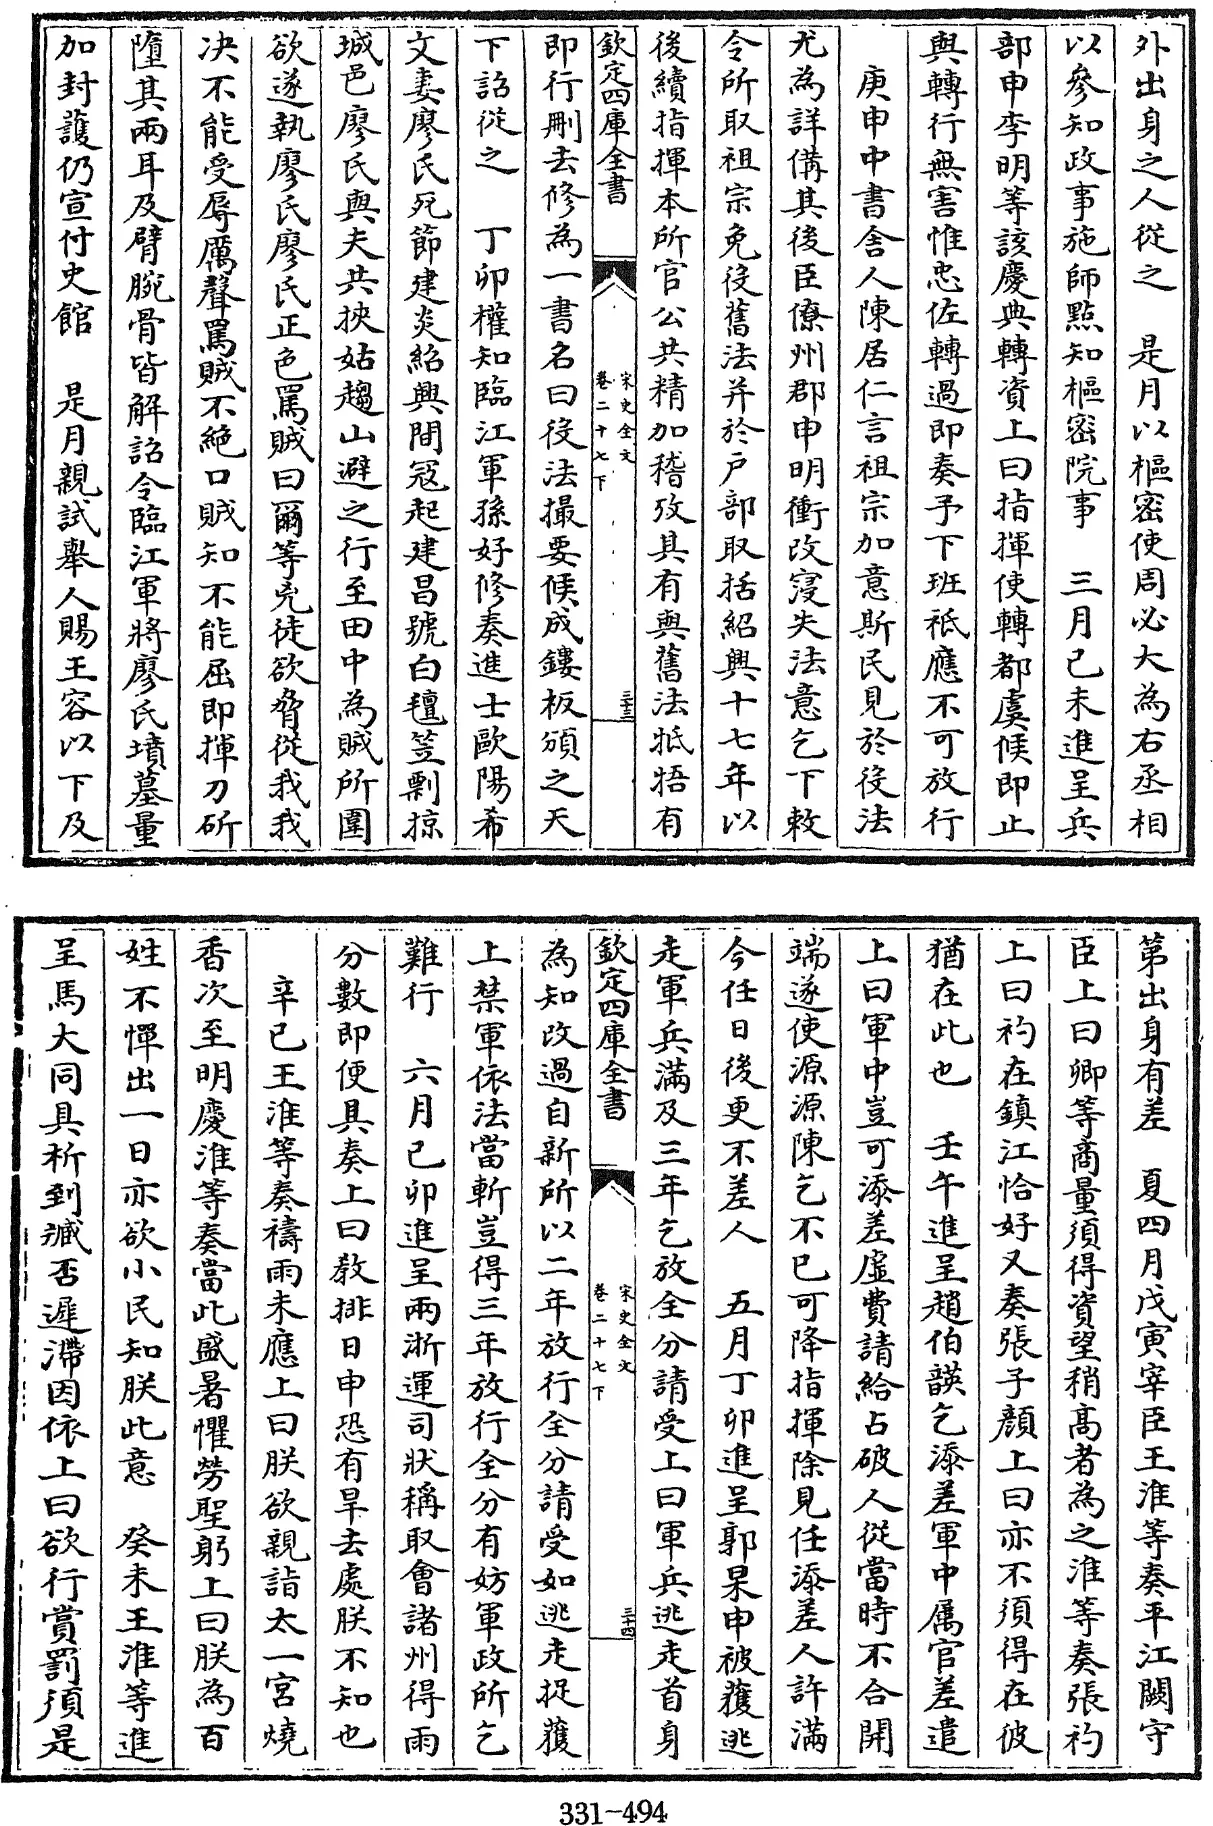 外出身之人從之　是月以樞密使周必大為右丞相
以參知政事施師點知樞密院事　三月己未進呈兵
部申李明等該慶典轉資上曰指揮使轉都虞候即止
與轉行無害惟忠佐轉過即奏予下班祇應不可放行
庚申中書舍人陳居仁言祖宗加意斯民見於役法
尤為詳備其後臣僚州郡申明衝改寖失法意乞下敕
令所取祖宗免役舊法并於户部取括紹興十七年以
後續指揮本所官公共精加稽攷具有與舊法牴牾有
欽定四庫全書
宋史全文
卷二十七下
三十三
即行刪去修為一書名曰役法撮要候成鏤板頒之天
下詔從之　丁卯權知臨江軍孫好修奏進士歐陽希
文妻廖氏死節建炎紹興間冦起建昌號白氊笠剽掠
城邑廖氏與夫共挾姑趨山避之行至田中為賊所圍
欲遂執廖氏廖氏正色罵賊曰爾等兇徒欲脅從我我
決不能受辱厲聲罵賊不絶口賊知不能屈即揮刀斫
墮其兩耳及臂腕骨皆解詔令臨江軍將廖氏墳墓量
加封護仍宣付史館　是月親試舉人賜王容以下及
第出身有差　夏四月戊寅宰臣王淮等奏平江闕守
臣上曰卿等商量須得資望稍髙者為之淮等奏張杓
上曰杓在鎮江恰好又奏張子顔上曰亦不須得在彼
猶在此也　壬午進呈趙伯䪺乞添差軍中属官差遣
上曰軍中豈可添差虛費請給占破人從當時不合開
端遂使源源陳乞不已可降指揮除見任添差人許滿
今任日後更不差人　五月丁卯進呈郭杲申被獲逃
走軍兵滿及三年乞放全分請受上曰軍兵逃走首身
欽定四庫全書
宋史全文
卷二十七下
三十四
為知改過自新所以二年放行全分請受如逃走捉獲
上禁軍依法當斬豈得三年放行全分有妨軍政所乞
難行　六月己卯進呈兩浙運司狀稱取會諸州得雨
分數即便具奏上曰教排日申恐有旱去處朕不知也
辛巳王淮等奏禱雨未應上曰朕欲親詣太一宮燒
香次至明慶淮等奏當此盛暑懼勞聖躬上曰朕為百
姓不憚出一日亦欲小民知朕此意　癸未王淮等進
呈馬大同具析到臧否遲滯因依上曰欲行賞罰須是
331-494